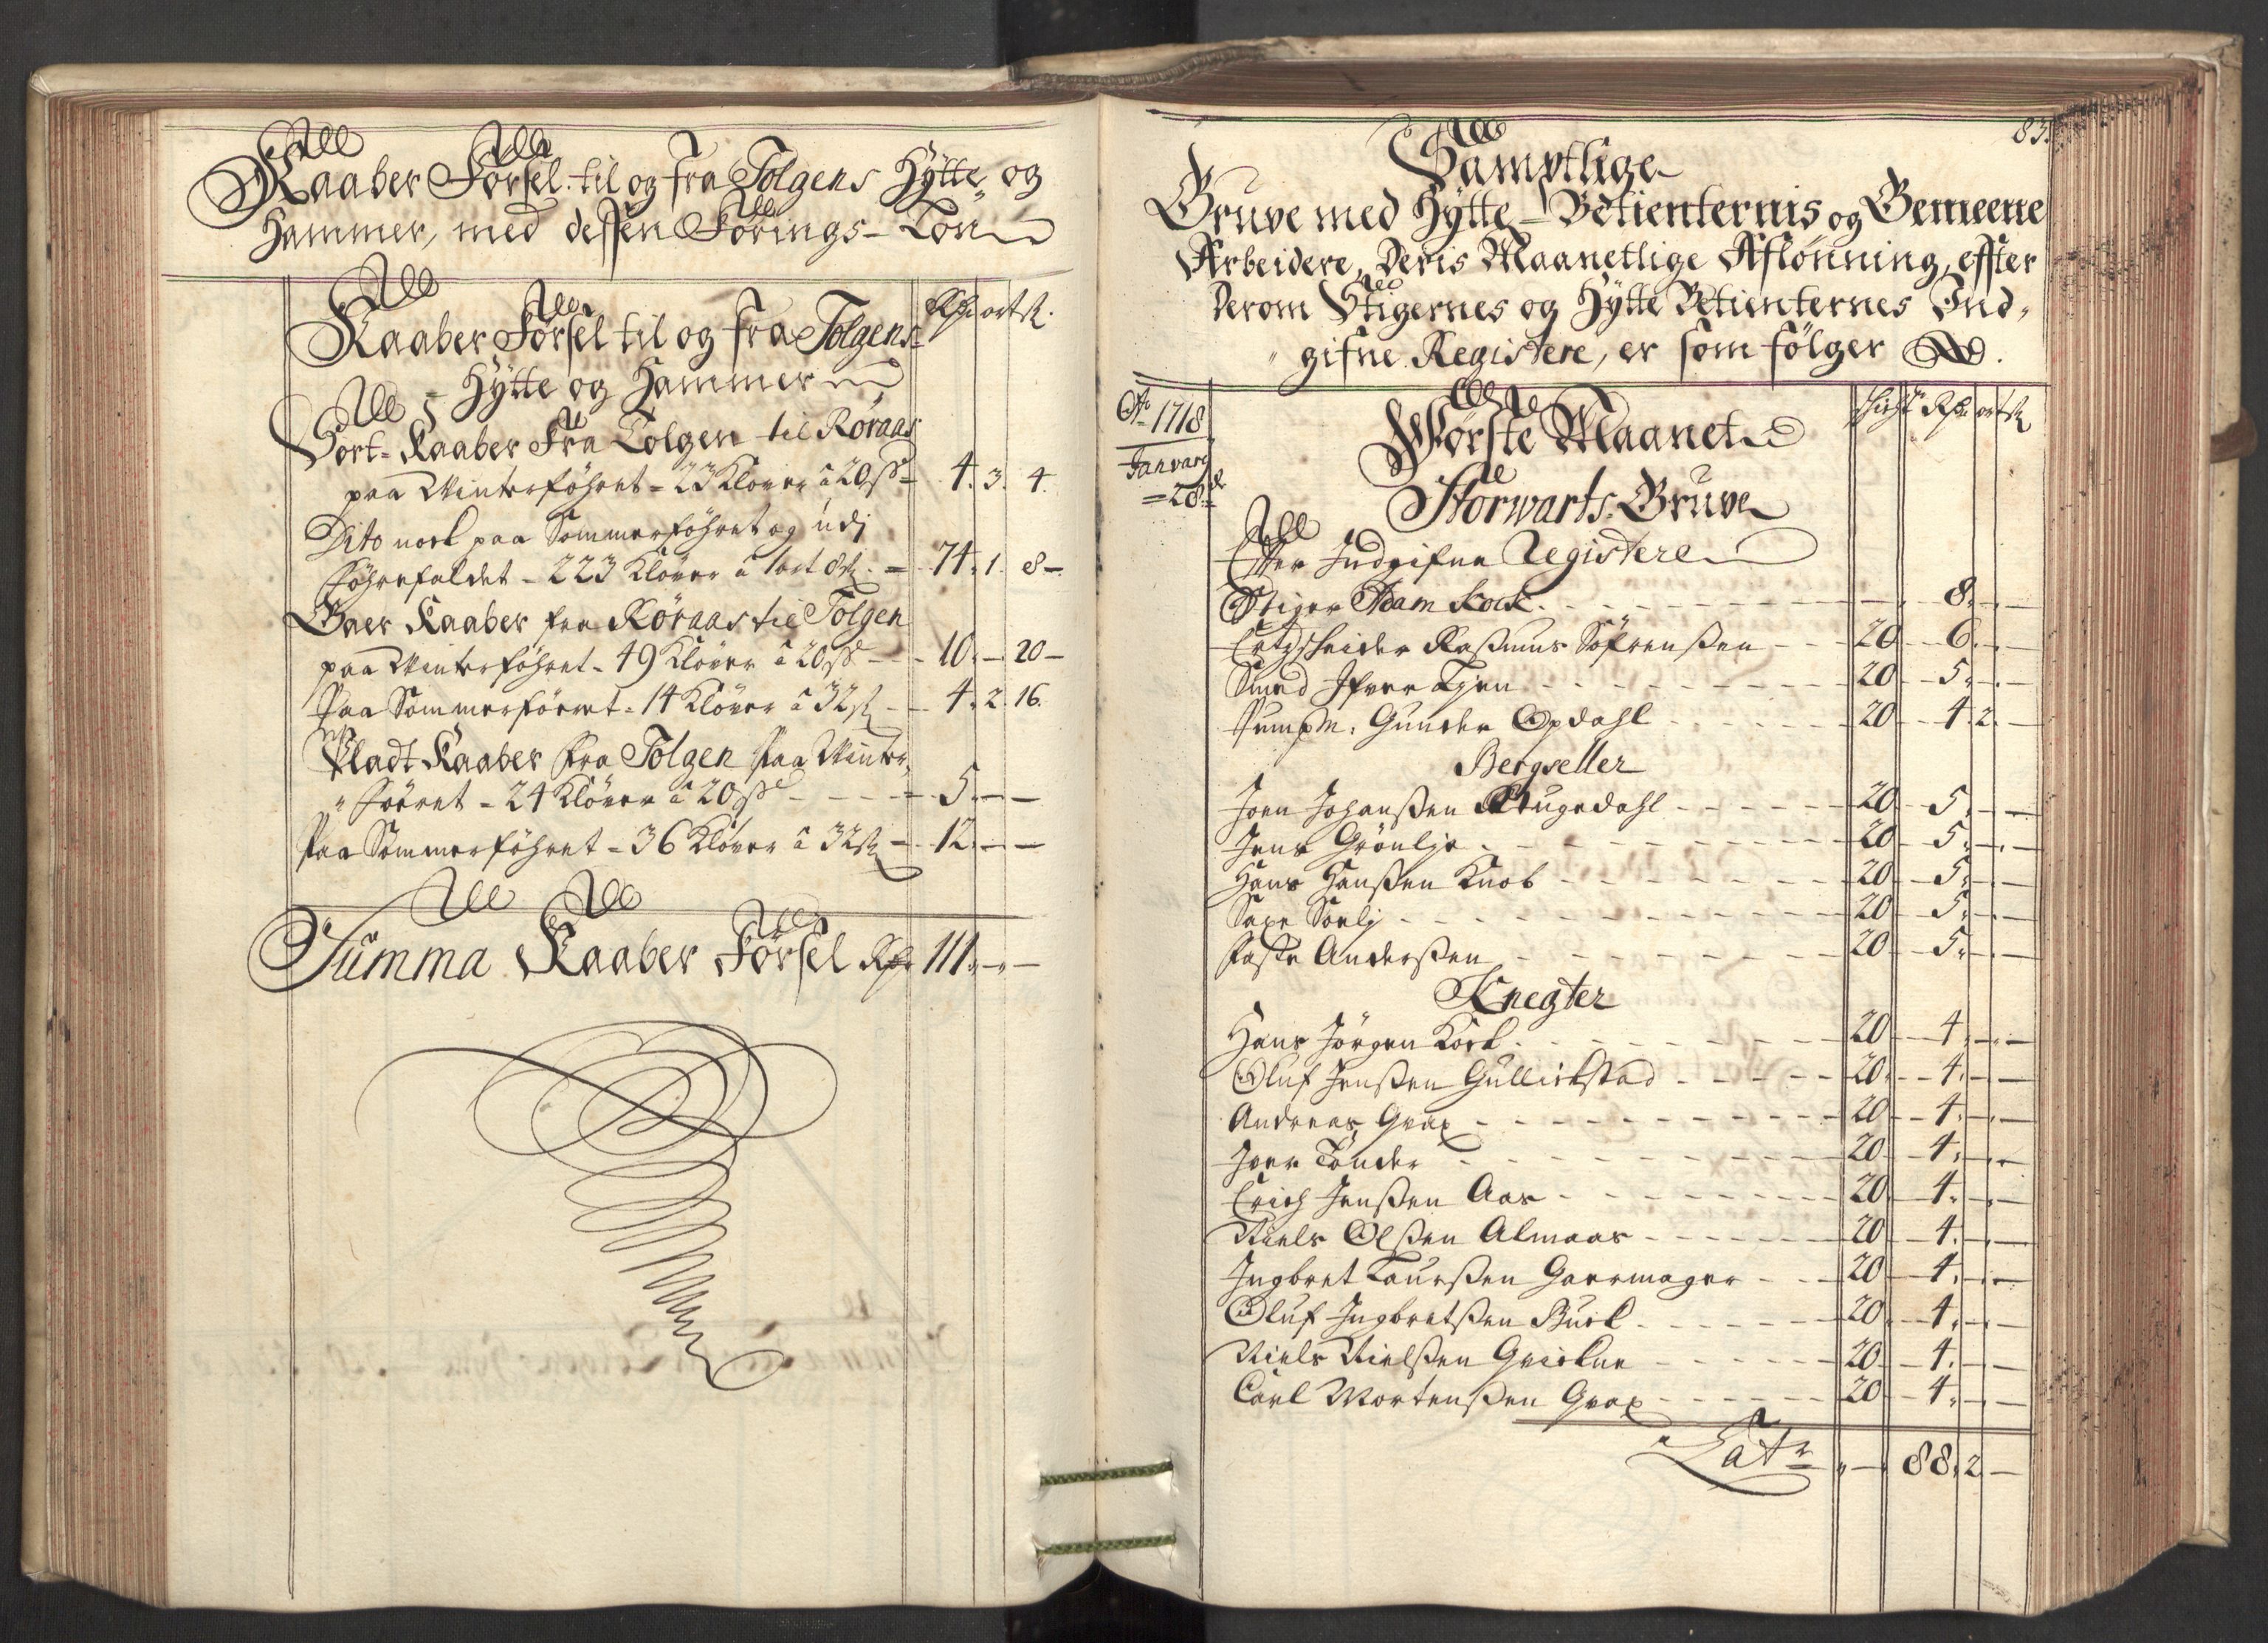 Kaaber Förſel til og fra Tolgens Hÿtte og
Hammer, med deſſen Förings-Lön
Rdr ort ſk.
Kaaber Förſel til og fra Tolgens
Hÿtte og Hammer
Sort-Kaaber Fra Tolgen til Röraas
paa Winterföhret - 23 Klöver â 20 ſk - 4. 3. 4.
Dito nock paa Sommerföhret og udj
Föhrefaldet - 223 Klöver â 1 ort 8 ſk. - 74. 1. 8 -
Gaer Kaaber fra Röraas til Tolgen
paa Winterföhret - 49 Klöver â 20 ſk - 10. - 20 -
Paa Sommerföret - 14 Klöver â 32 ſk - 4. 2. 16.
Pladt Kaaber fra Tolgen paa Winter
Föret - 24 Klöver â 20 ſk - 5. - -
Paa Sommerföhret - 36 Klöver â 32 ſk - 12. - -
Summa Kaaber Förſel Rdr 111. - -
83.
Samptlige
Gruve med Hÿtte-Betienternis og Gemeene
Arbeidere, Deris Maanetlige Aflönning, effter
Derom Stigernes og Hÿtte Betienternes Ind-
gifne Registere, er ſom fölger
Ao 1718
Januarj
28de
Förſte Maanet
Rdr ort ſk
Storwarts Gruve
Effter Indgifne Registere
Stiger Adam Kock - - 8. - -
Ertzſcheider Raßmus Söfrenßen - 20 - 6. - -
Smed Ifver Tÿen - 20 - 5. - -
Pumpm. Gunder Opdahl - 20 - 4. 2. -
Bergſeller
Joen Johanßen Rugedahl - 20 - 5. - -
Jens Grönlje - 20 - 5. - -
Hans Hanßen Knob - 20 - 5. - -
Saxe Soelj - 20 - 5. - -
Poſte Anderßen - 20 - 5. - -
Knegter
Hans Jörgen Kock - 20 - 4. - -
Oluf Jenßen Gullickſtad - 20 - 4. - -
Andreas Grax - 20 - 4. - -
Joen Tönder - 20 - 4. - -
Erich Jenßen Aas - 20 - 4. - -
Niels Olßen Almaas - 20 - 4. - -
Ingbret Laurßen Gaermager - 20 - 4. - -
Oluf Ingbretßen Buck - 20 - 4. - -
Niels Nielßen Qvickne - 20 - 4. - -
Carl Mortenßen Grax - 20 - 4. - -
Latr - 88. 2. -